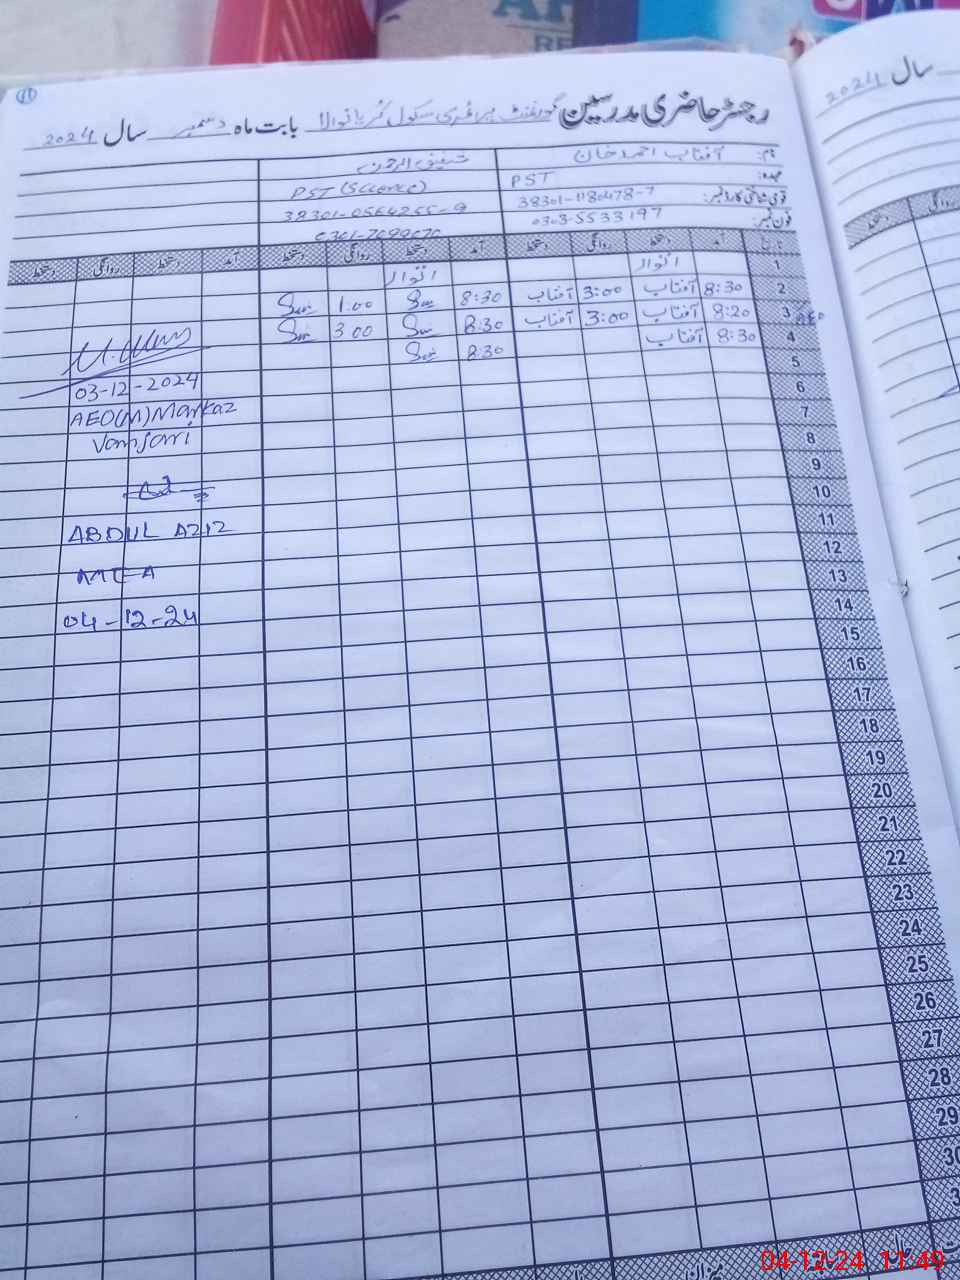 رجسٹر حاضری مدرسین گورنمنٹ پرائمری سکول بابت ماہ دسمبر سال 2024
سال 2024
نام: آفتاب احمد خان شفیق الرحمن
عہدہ: PST PST (Science)
قومی شناختی کارڈ نمبر: 38301-1180478-7 38301-0564255-9
فون نمبر: 0303-5533197
تاریخ آمد دستخط روانگی دستخط آمد دستخط روانگی دستخط آمد دستخط روانگی دستخط
1 اتوار اتوار
2 8:30 آفتاب 3:00 آفتاب 8:30 1:00
3 8:20 آفتاب 3:00 آفتاب 8:30 3 00
4 8:30 آفتاب 8:30
5
6
7
8
9
10
11
12
13
14
15
16
17
18
19
20
21
22
23
24
25
26
27
28
29
30
03-12-2024
AEO(M) Markaz
ABDUL AZIZ
MEA
04-12-24
میزان
04-12-24 11:49